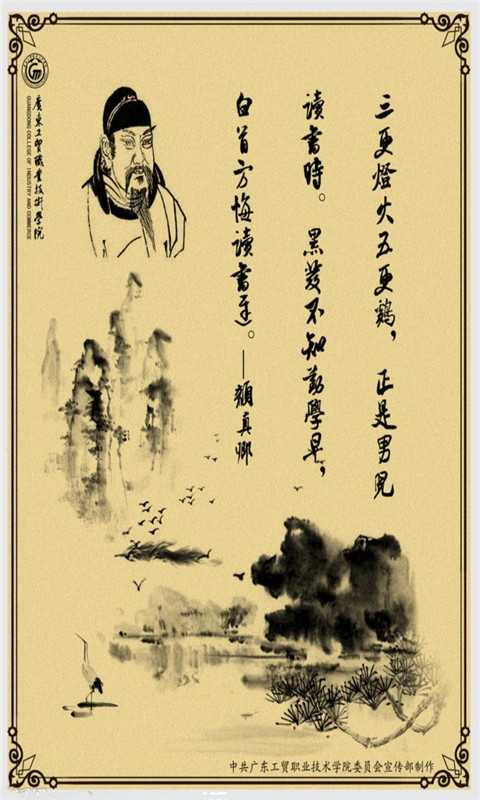 三更燈火五更鷄，正是男兒
讀書時。黑髮不知勤學早，
白首方悔讀書遲。—顏真卿
廣東工貿職業技術學院
GUANGDONG COLLEGE OF INDUSTRY AND COMMERCE
中共广东工贸职业技术学院委员会宣传部制作